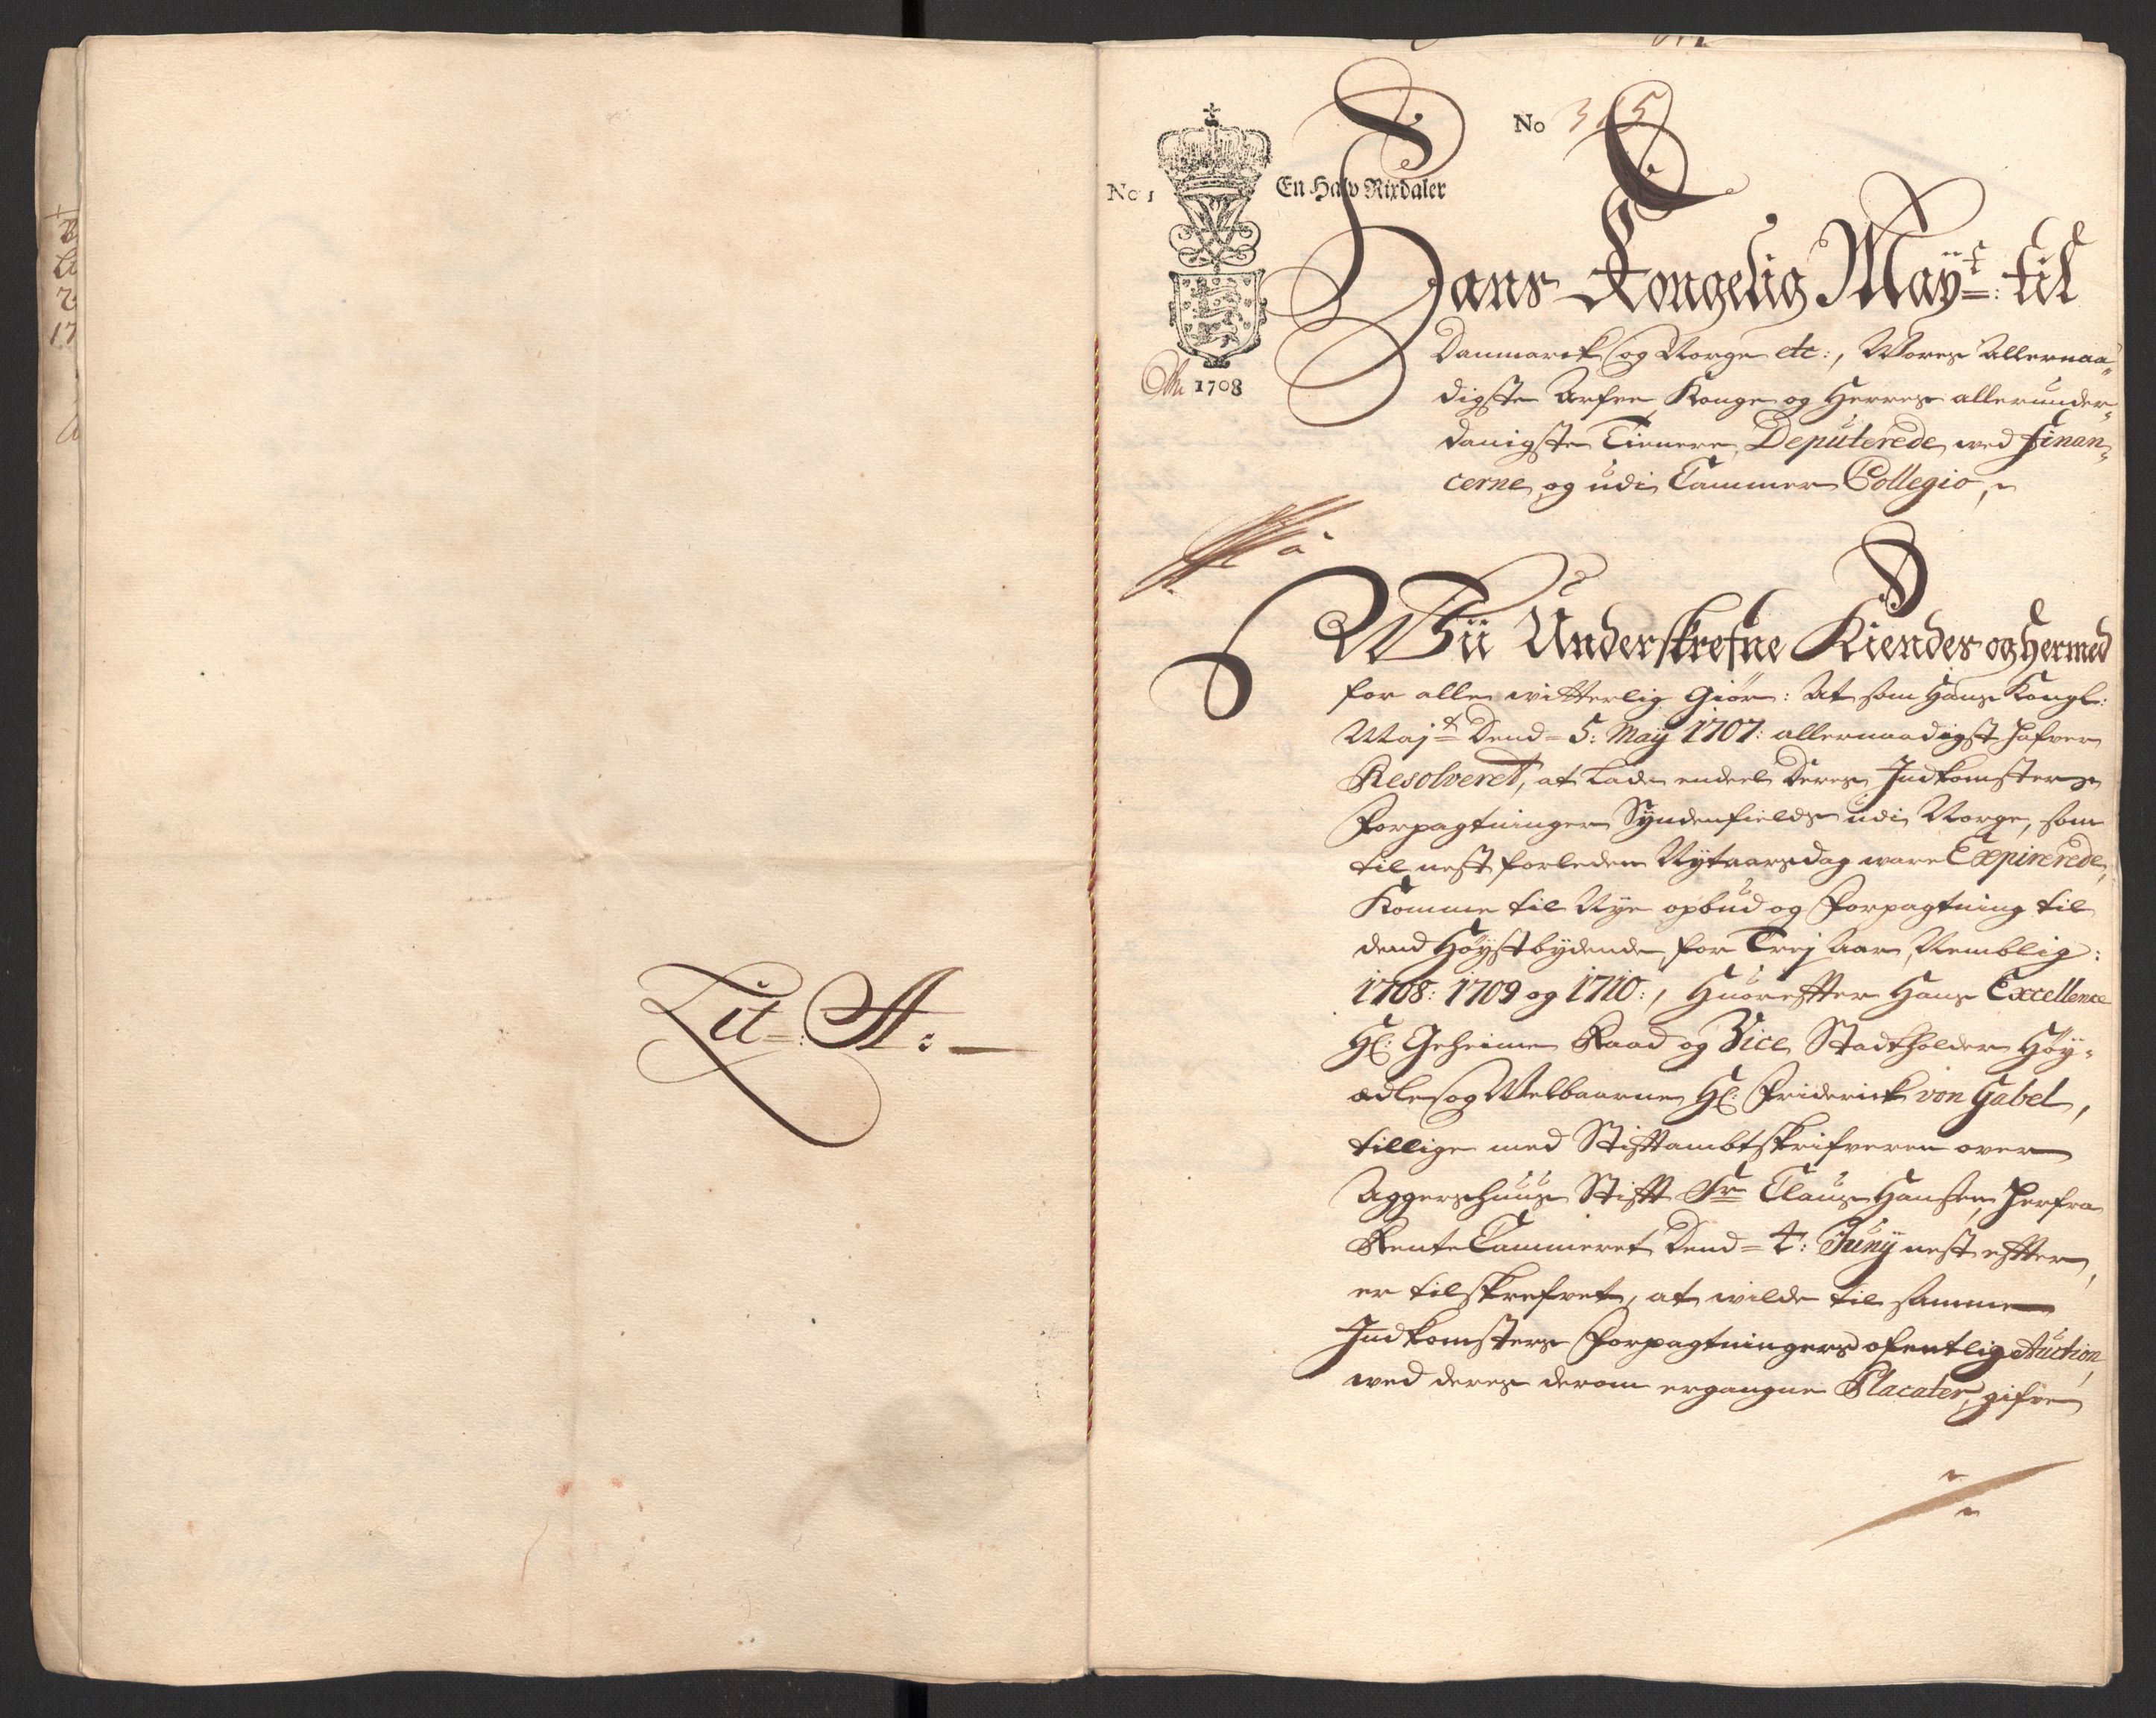 Lit: A: —
No 315
No 1
En Halv Rixdaler
1708
Hans Kongelig Mayt: til
Danmarck og Norge etc:, Wores Allernaa-
digste Arfve Konge og Herres allerunder-
danigste Tienere, Deputerede ved Finan-
cerne, og udi Cammer Collegio,
Wii Underskrefne Kiendes og hermed
for alle witterlig Giør: At som Hans Kongl:
Majt Dend 5: May 1707: allernaadigst hafver
Resolveret, at lade endeel Deres Indkomsters
Forpagtninger Syndenfields udi Norge, som
til nest forleden Nytaarsdag ware Expirerede,
Komme til Nye opbud og Forpagtning til
dend Høystbydende, for Trej Aar, Nemblig:
1708: 1709 og 1710:, Huorefter Hans Excellence
Hl: Geheime Raad og Vice Stadtholder Høy-
ædle og Welbaarne Hl: Friderick von Gabel,
tillige med Stiftambtskrifveren over
Aggershuus Stift Sr Claus Hansen, herfra
Rente Cammeret Dend 4: Juny nest efter,
er tilskrefvet, at wilde til samme
Indkomsters Forpagtningers ofentlig Auction,
ved deres derom ergangne Placater, gifve